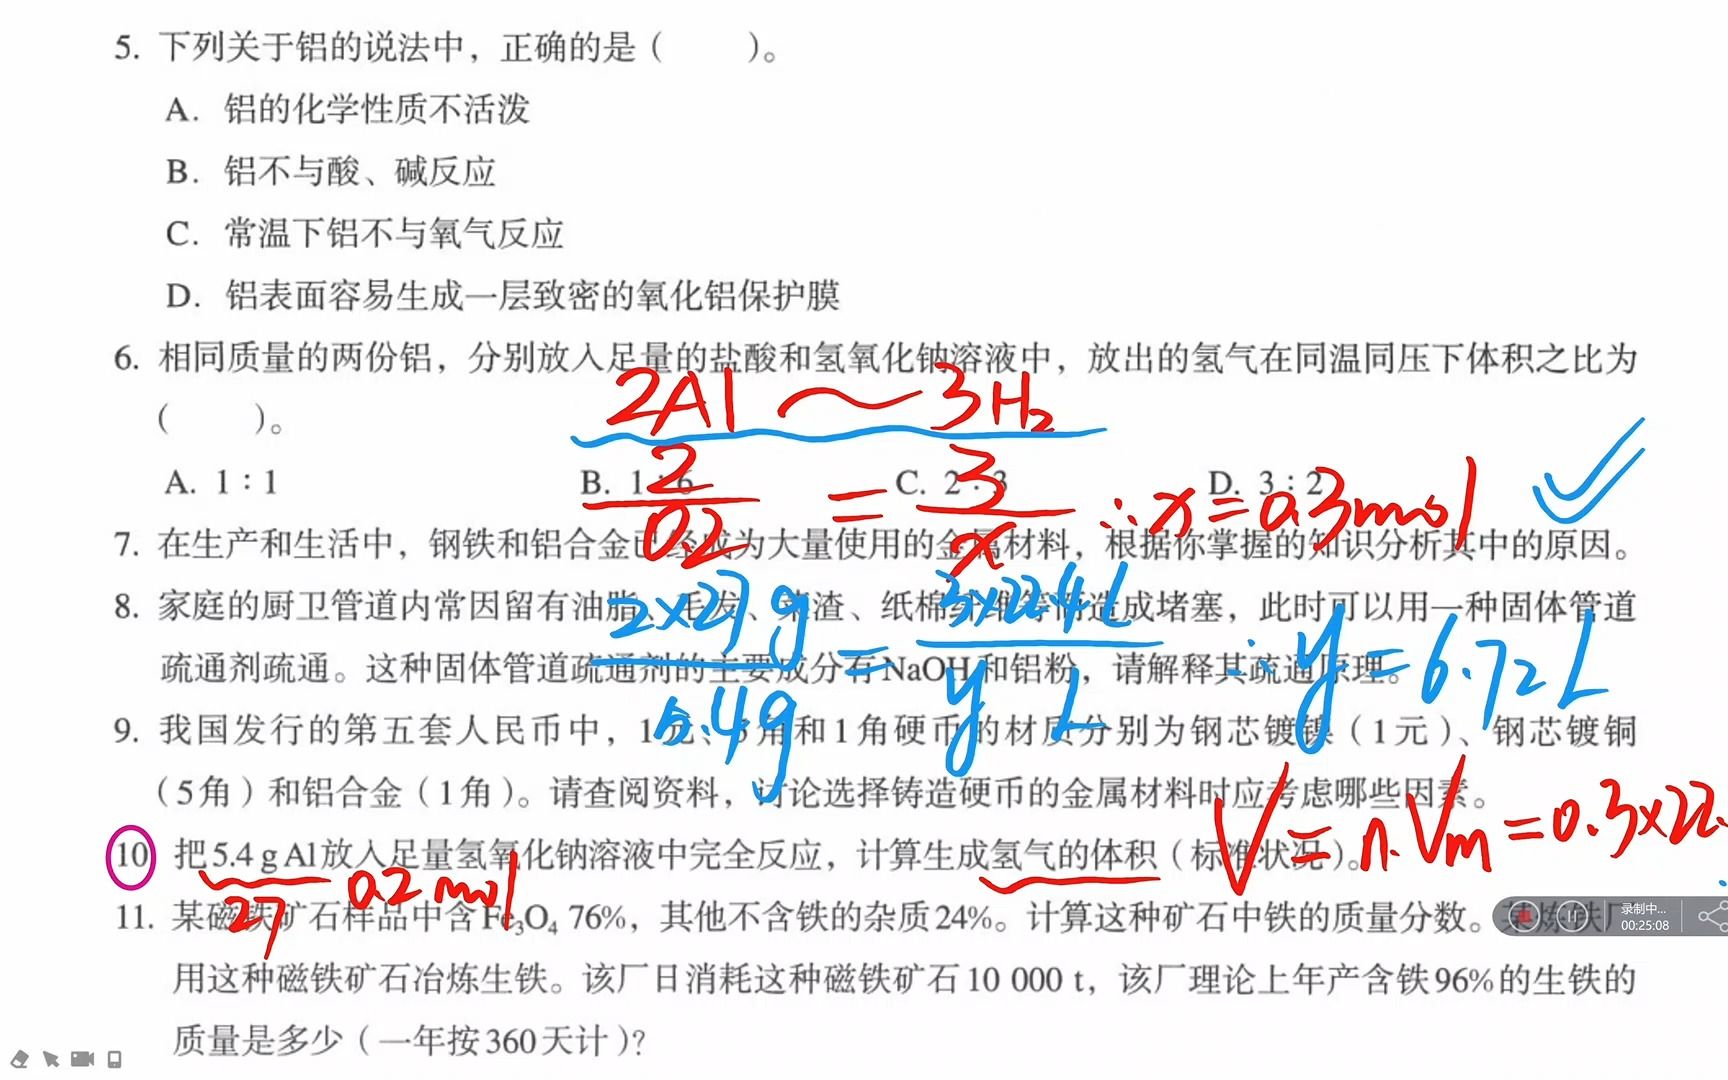 5. 下列关于铝的说法中，正确的是（　　）。
A. 铝的化学性质不活泼
B. 铝不与酸、碱反应
C. 常温下铝不与氧气反应
D. 铝表面容易生成一层致密的氧化铝保护膜
6. 相同质量的两份铝，分别放入足量的盐酸和氢氧化钠溶液中，放出的氢气在同温同压下体积之比为
（　　）。
2Al ～ 3H₂
A. 1∶1 B. 1∶6 C. 2∶3 D. 3∶2
2/0.2 = 3/x ∴x=0.3mol
7. 在生产和生活中，钢铁和铝合金已经成为大量使用的金属材料，根据你掌握的知识分析其中的原因。
8. 家庭的厨卫管道内常因留有油脂、毛发、菜渣、纸棉纤维等而造成堵塞，此时可以用一种固体管道
疏通剂疏通。这种固体管道疏通剂的主要成分有NaOH和铝粉，请解释其疏通原理。
2×27g/5.4g = 3×22.4L/y L ∴y=6.72L
9. 我国发行的第五套人民币中，1元、5角和1角硬币的材质分别为钢芯镀镍（1元）、钢芯镀铜
（5角）和铝合金（1角）。请查阅资料，讨论选择铸造硬币的金属材料时应考虑哪些因素。
V=n.Vm=0.3×22.
10 把5.4 g Al放入足量氢氧化钠溶液中完全反应，计算生成氢气的体积（标准状况）。
27 0.2mol
11. 某磁铁矿石样品中含Fe₃O₄ 76%，其他不含铁的杂质24%。计算这种矿石中铁的质量分数。某炼铁厂
录制中...
00:25:08
用这种磁铁矿石冶炼生铁。该厂日消耗这种磁铁矿石10 000 t，该厂理论上年产含铁96%的生铁的
质量是多少（一年按360天计）？